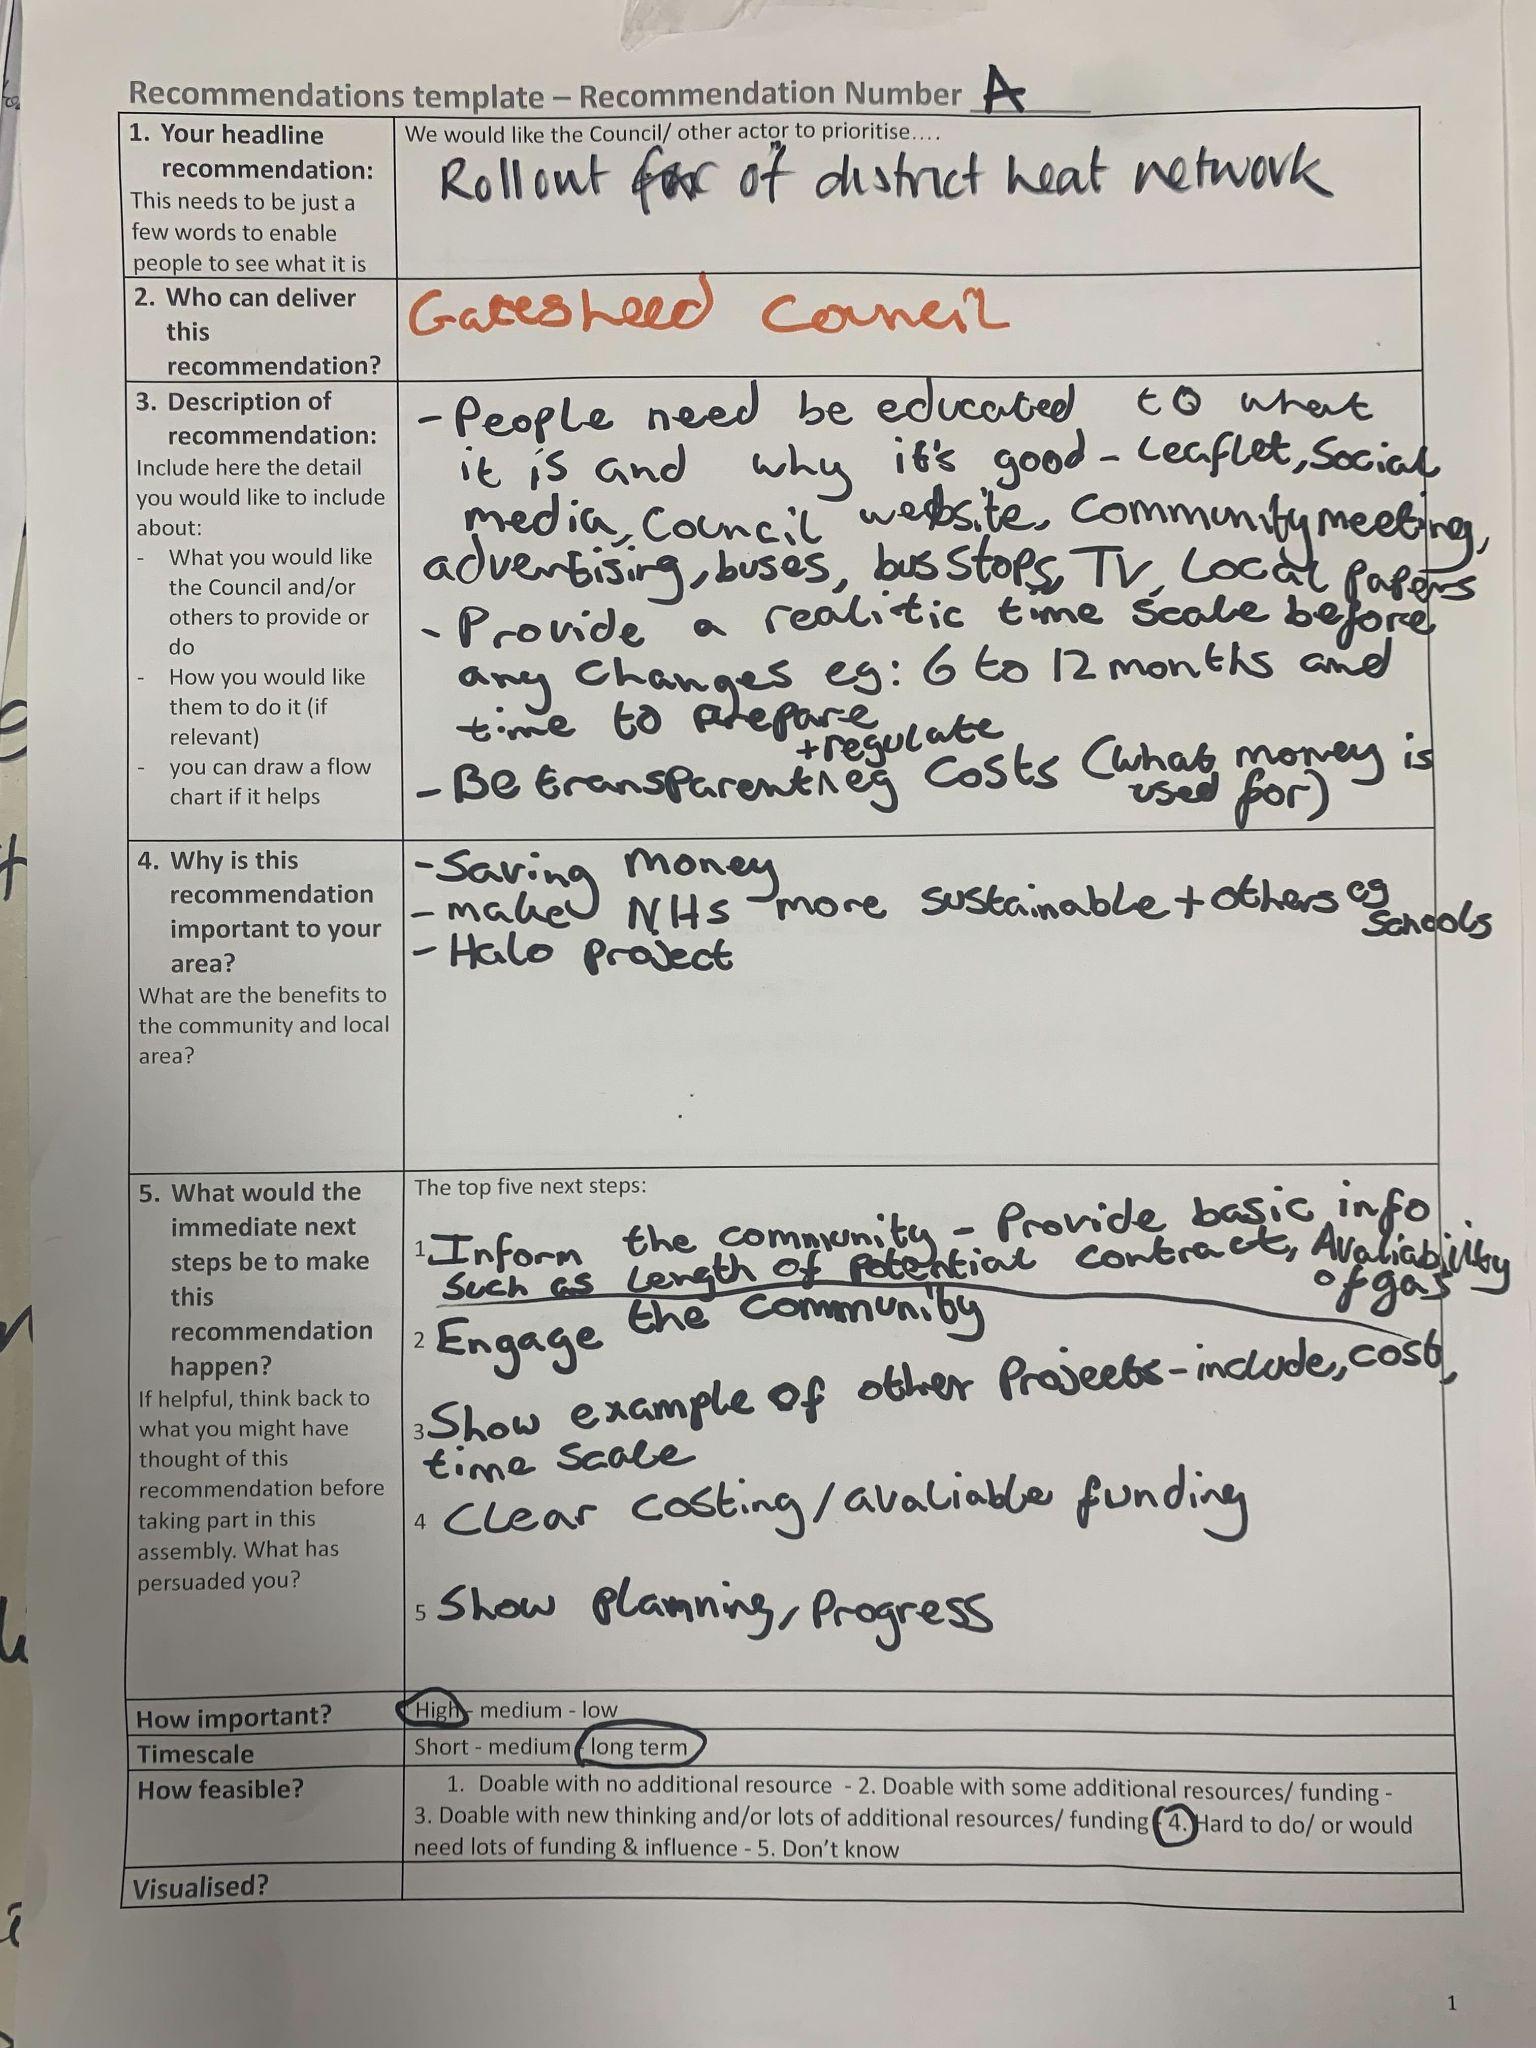 Recommendations template – Recommendation Number A
1. Your headline
recommendation:
This needs to be just a
few words to enable
people to see what it is
We would like the Council/ other actor to prioritise….
Rollout of district heat network
2. Who can deliver
this
recommendation?
Gateshead Council
3. Description of
recommendation:
Include here the detail
you would like to include
about:
- What you would like
the Council and/or
others to provide or
do
- How you would like
them to do it (if
relevant)
- you can draw a flow
chart if it helps
- People need be educated to what
it is and why it's good - Leaflet, Social
media, Council website, Community meeting,
advertising, buses, bus stops, TV, Local papers
- Provide a realitic time scale before
any changes eg: 6 to 12 months and
time to prepare
+ regulate
- Be transparent eg costs (what money is
used for)
4. Why is this
recommendation
important to your
area?
What are the benefits to
the community and local
area?
- Saving money
- make NHS more sustainable + others eg
Schools
- Halo project
5. What would the
immediate next
steps be to make
this
recommendation
happen?
If helpful, think back to
what you might have
thought of this
recommendation before
taking part in this
assembly. What has
persuaded you?
The top five next steps:
1 Inform the community - Provide basic info
such as length of potential contract, Avaliability
of gas
2 Engage the community
3 Show example of other Projects - include, cost,
time scale
4 Clear costing / avaliable funding
5 Show planning, Progress
How important?
High - medium - low
Timescale
Short - medium - long term
How feasible?
1. Doable with no additional resource - 2. Doable with some additional resources/ funding -
3. Doable with new thinking and/or lots of additional resources/ funding - 4. Hard to do/ or would
need lots of funding & influence - 5. Don't know
Visualised?
1